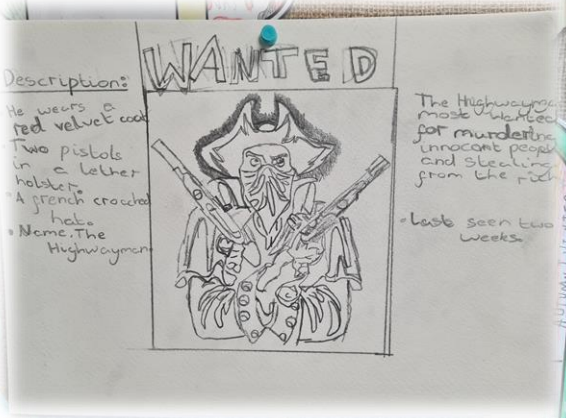 WANTED
Description:
He wears a
red velvet coat
Two pistols
in a lether
holster.
• A french croached
hat.
• Name. The
Highwayman
The Highwayman
most wanted
for murdering
innocent people
and stealing
from the rich
• Last seen two
weeks